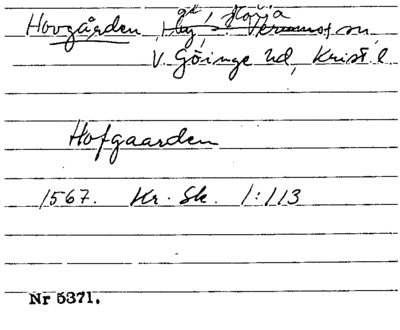 gd, Röja
Hovgården, sn
V. Göinge hd, Krist. l.
Hofgaarden
1567. Kr. Sk. 1:113
Nr 5371.